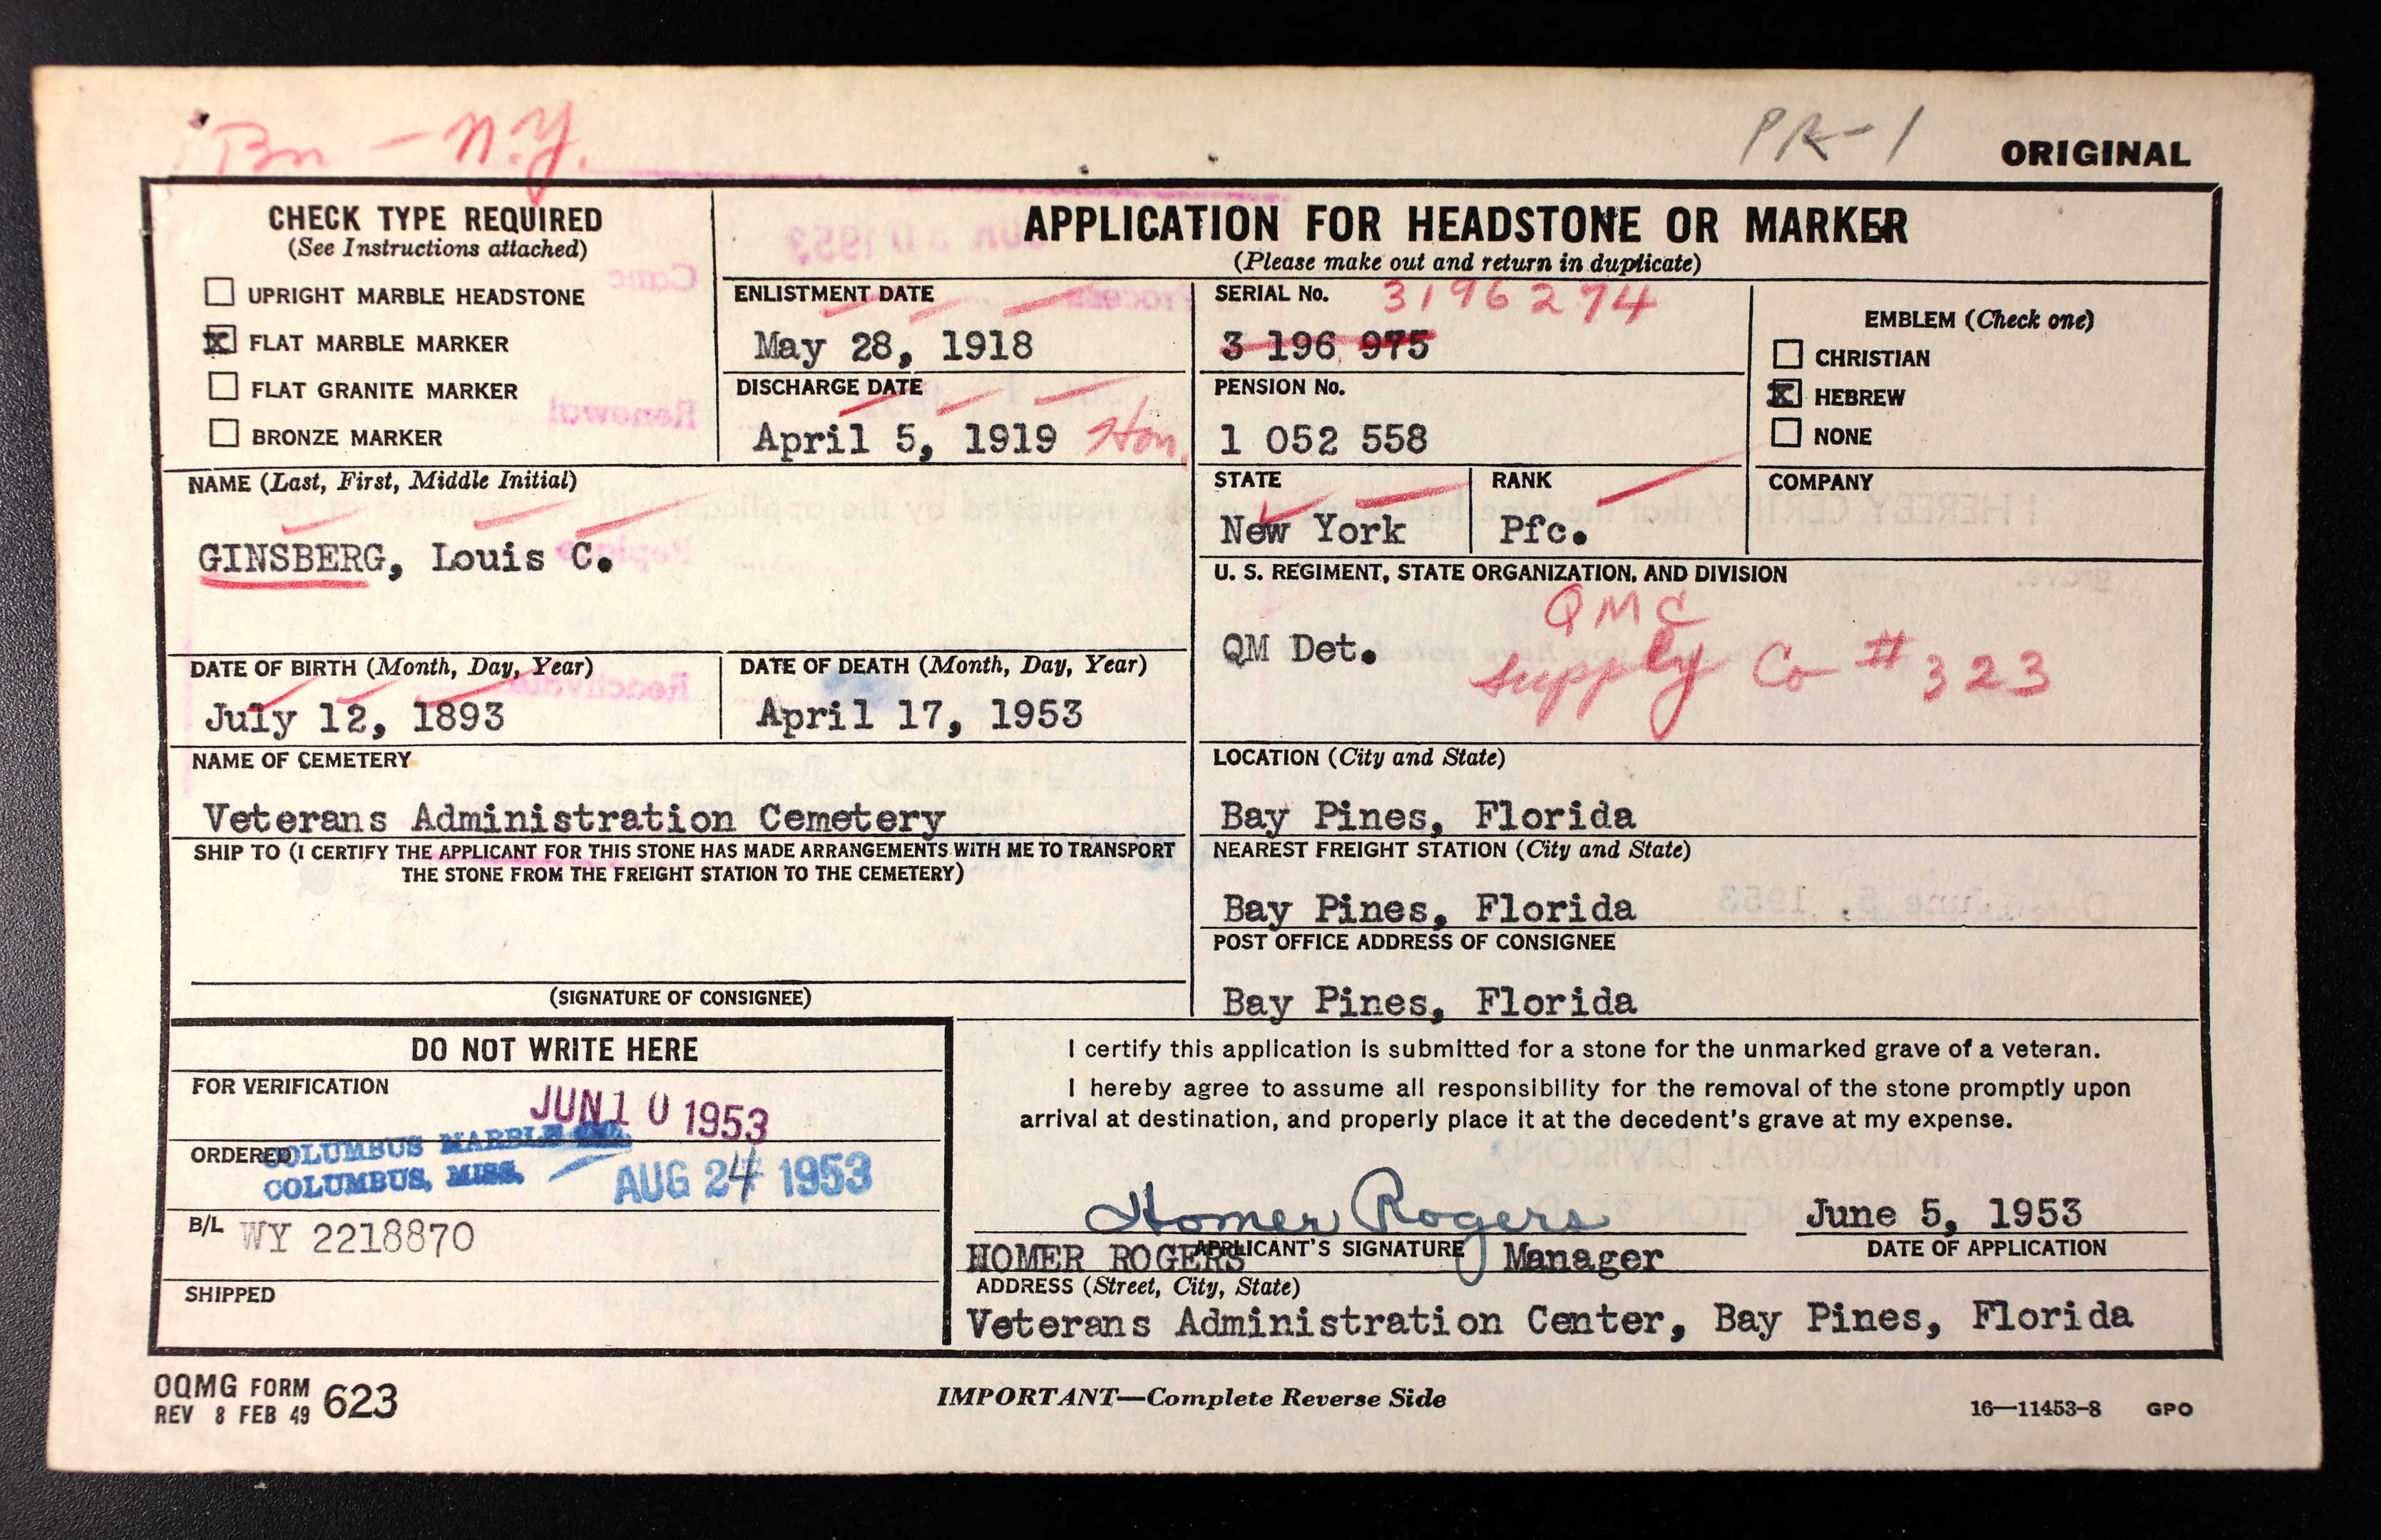 Bn - N.Y.
PR-1
ORIGINAL
CHECK TYPE REQUIRED
(See Instructions attached)
UPRIGHT MARBLE HEADSTONE
X FLAT MARBLE MARKER
FLAT GRANITE MARKER
BRONZE MARKER
APPLICATION FOR HEADSTONE OR MARKER
(Please make out and return in duplicate)
ENLISTMENT DATE
May 28, 1918
DISCHARGE DATE
April 5, 1919 Hon.
SERIAL No. 3196274
3 196 975
PENSION No.
1 052 558
EMBLEM (Check one)
CHRISTIAN
X HEBREW
NONE
NAME (Last, First, Middle Initial)
GINSBERG, Louis C.
STATE
New York
RANK
Pfc.
COMPANY
U. S. REGIMENT, STATE ORGANIZATION, AND DIVISION
QMC
QM Det.
Supply Co # 323
DATE OF BIRTH (Month, Day, Year)
July 12, 1893
DATE OF DEATH (Month, Day, Year)
April 17, 1953
NAME OF CEMETERY
Veterans Administration Cemetery
LOCATION (City and State)
Bay Pines, Florida
SHIP TO (I CERTIFY THE APPLICANT FOR THIS STONE HAS MADE ARRANGEMENTS WITH ME TO TRANSPORT
THE STONE FROM THE FREIGHT STATION TO THE CEMETERY)
(SIGNATURE OF CONSIGNEE)
NEAREST FREIGHT STATION (City and State)
Bay Pines, Florida
POST OFFICE ADDRESS OF CONSIGNEE
Bay Pines, Florida
DO NOT WRITE HERE
FOR VERIFICATION
JUN 10 1953
ORDERED
COLUMBUS MARBLE
COLUMBUS, MISS.
AUG 24 1953
B/L WY 2218870
SHIPPED
I certify this application is submitted for a stone for the unmarked grave of a veteran.
I hereby agree to assume all responsibility for the removal of the stone promptly upon
arrival at destination, and properly place it at the decedent's grave at my expense.
Homer Rogers
June 5, 1953
APPLICANT'S SIGNATURE
DATE OF APPLICATION
HOMER ROGERS Manager
ADDRESS (Street, City, State)
Veterans Administration Center, Bay Pines, Florida
OQMG FORM 623
REV 8 FEB 49
IMPORTANT—Complete Reverse Side
16—11453-8 GPO